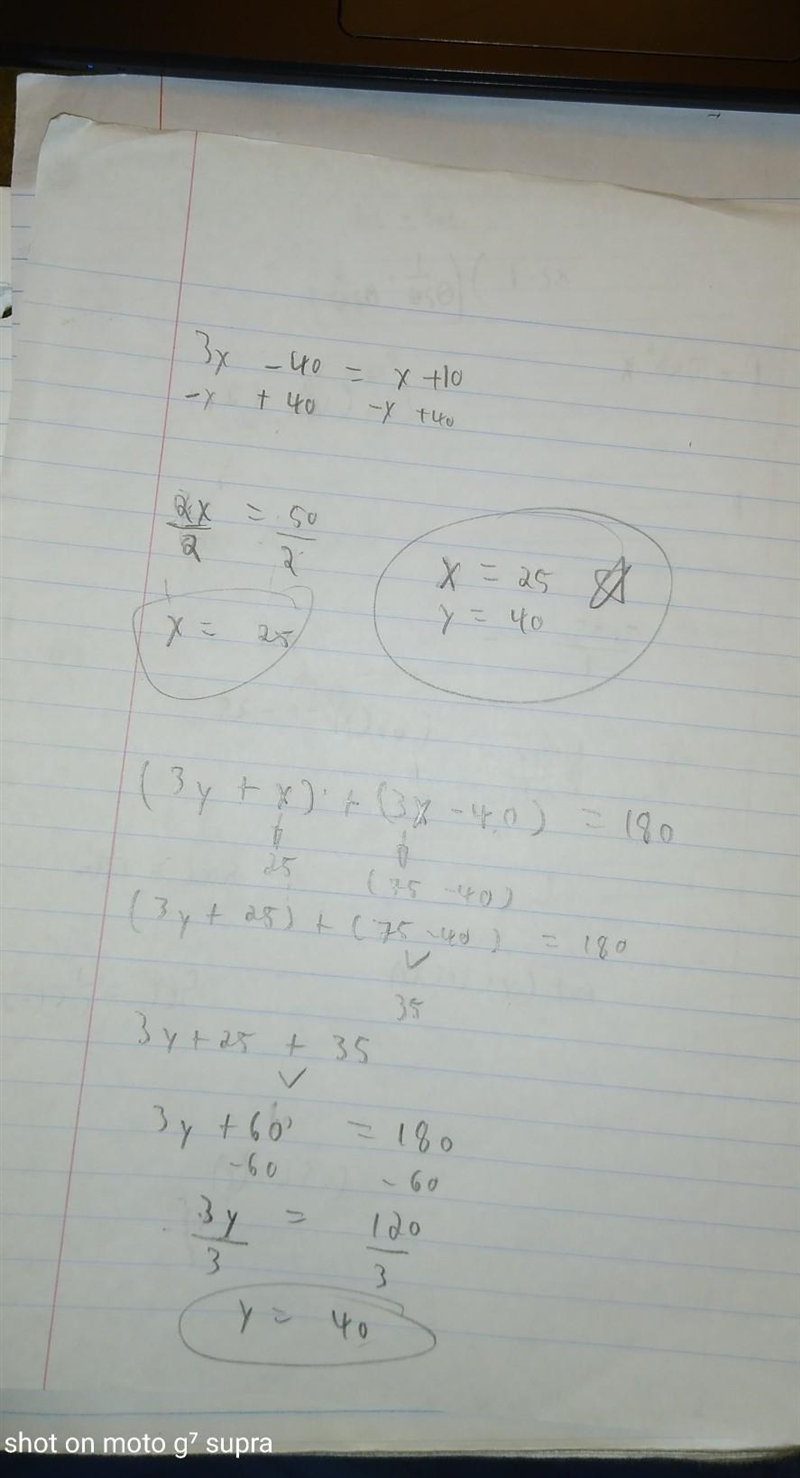 3x - 40 = x + 10
-x + 40 -x + 40
2x = 50
2 2
x = 25
x = 25
y = 40
(3y + x) + (3x - 40) = 180
25
(75 - 40)
(3y + 25) + (75 - 40) = 180
35
3y + 25 + 35
3y + 60 = 180
-60 -60
3y = 120
3 3
y = 40
shot on moto g⁷ supra